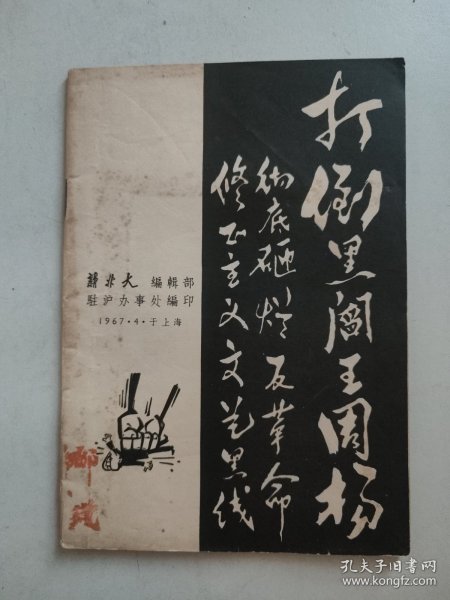 打倒黑阎王周扬
彻底砸烂反革命
修正主义文艺黑线
新北大 编辑部
駐沪办事处編印
1967·4·于上海
孔夫子旧书网
www.kongfz.com